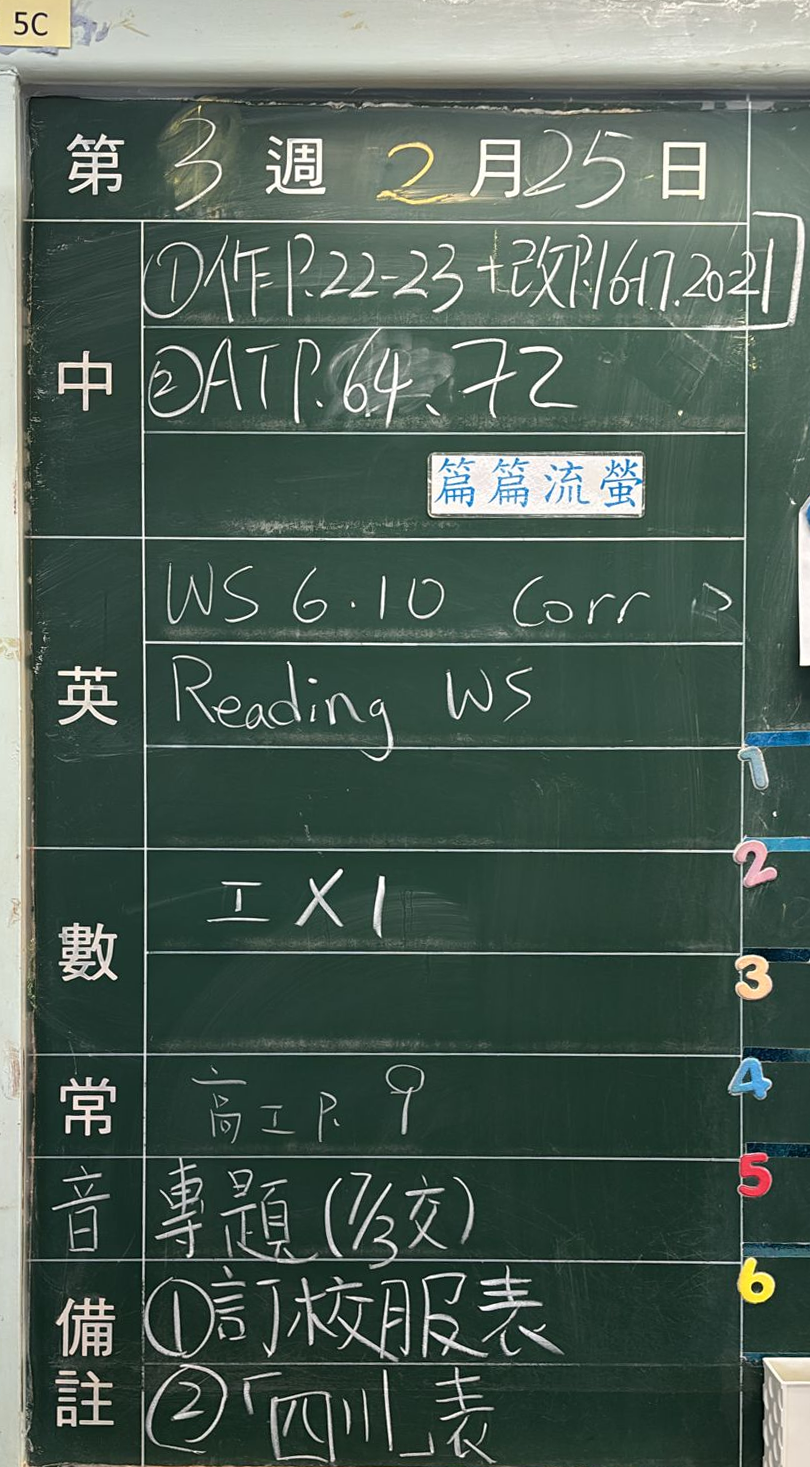 5C
第 3 週 2 月 25 日
中
①作P.22-23+改P.16-17.20-21
②AT P.64、72
篇篇流螢
英
WS 6.10 Corr
Reading WS
數
工 X 1
常
高工 P. 9
音
專題 (7/3交)
備註
①訂校服表
②「四川」表
1
2
3
4
5
6